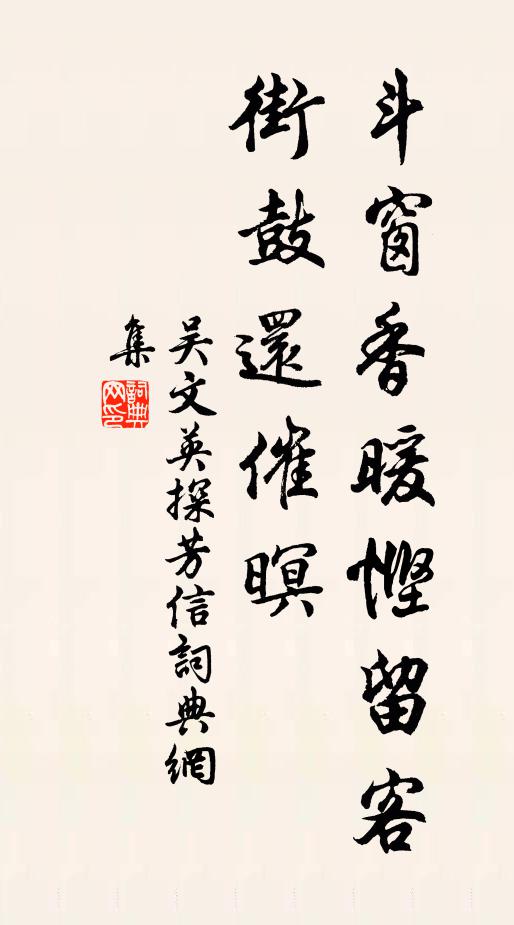 斗窗香暖慳留客
街鼓還催暝
吳文英探芳信詞典網
集
詞典網印